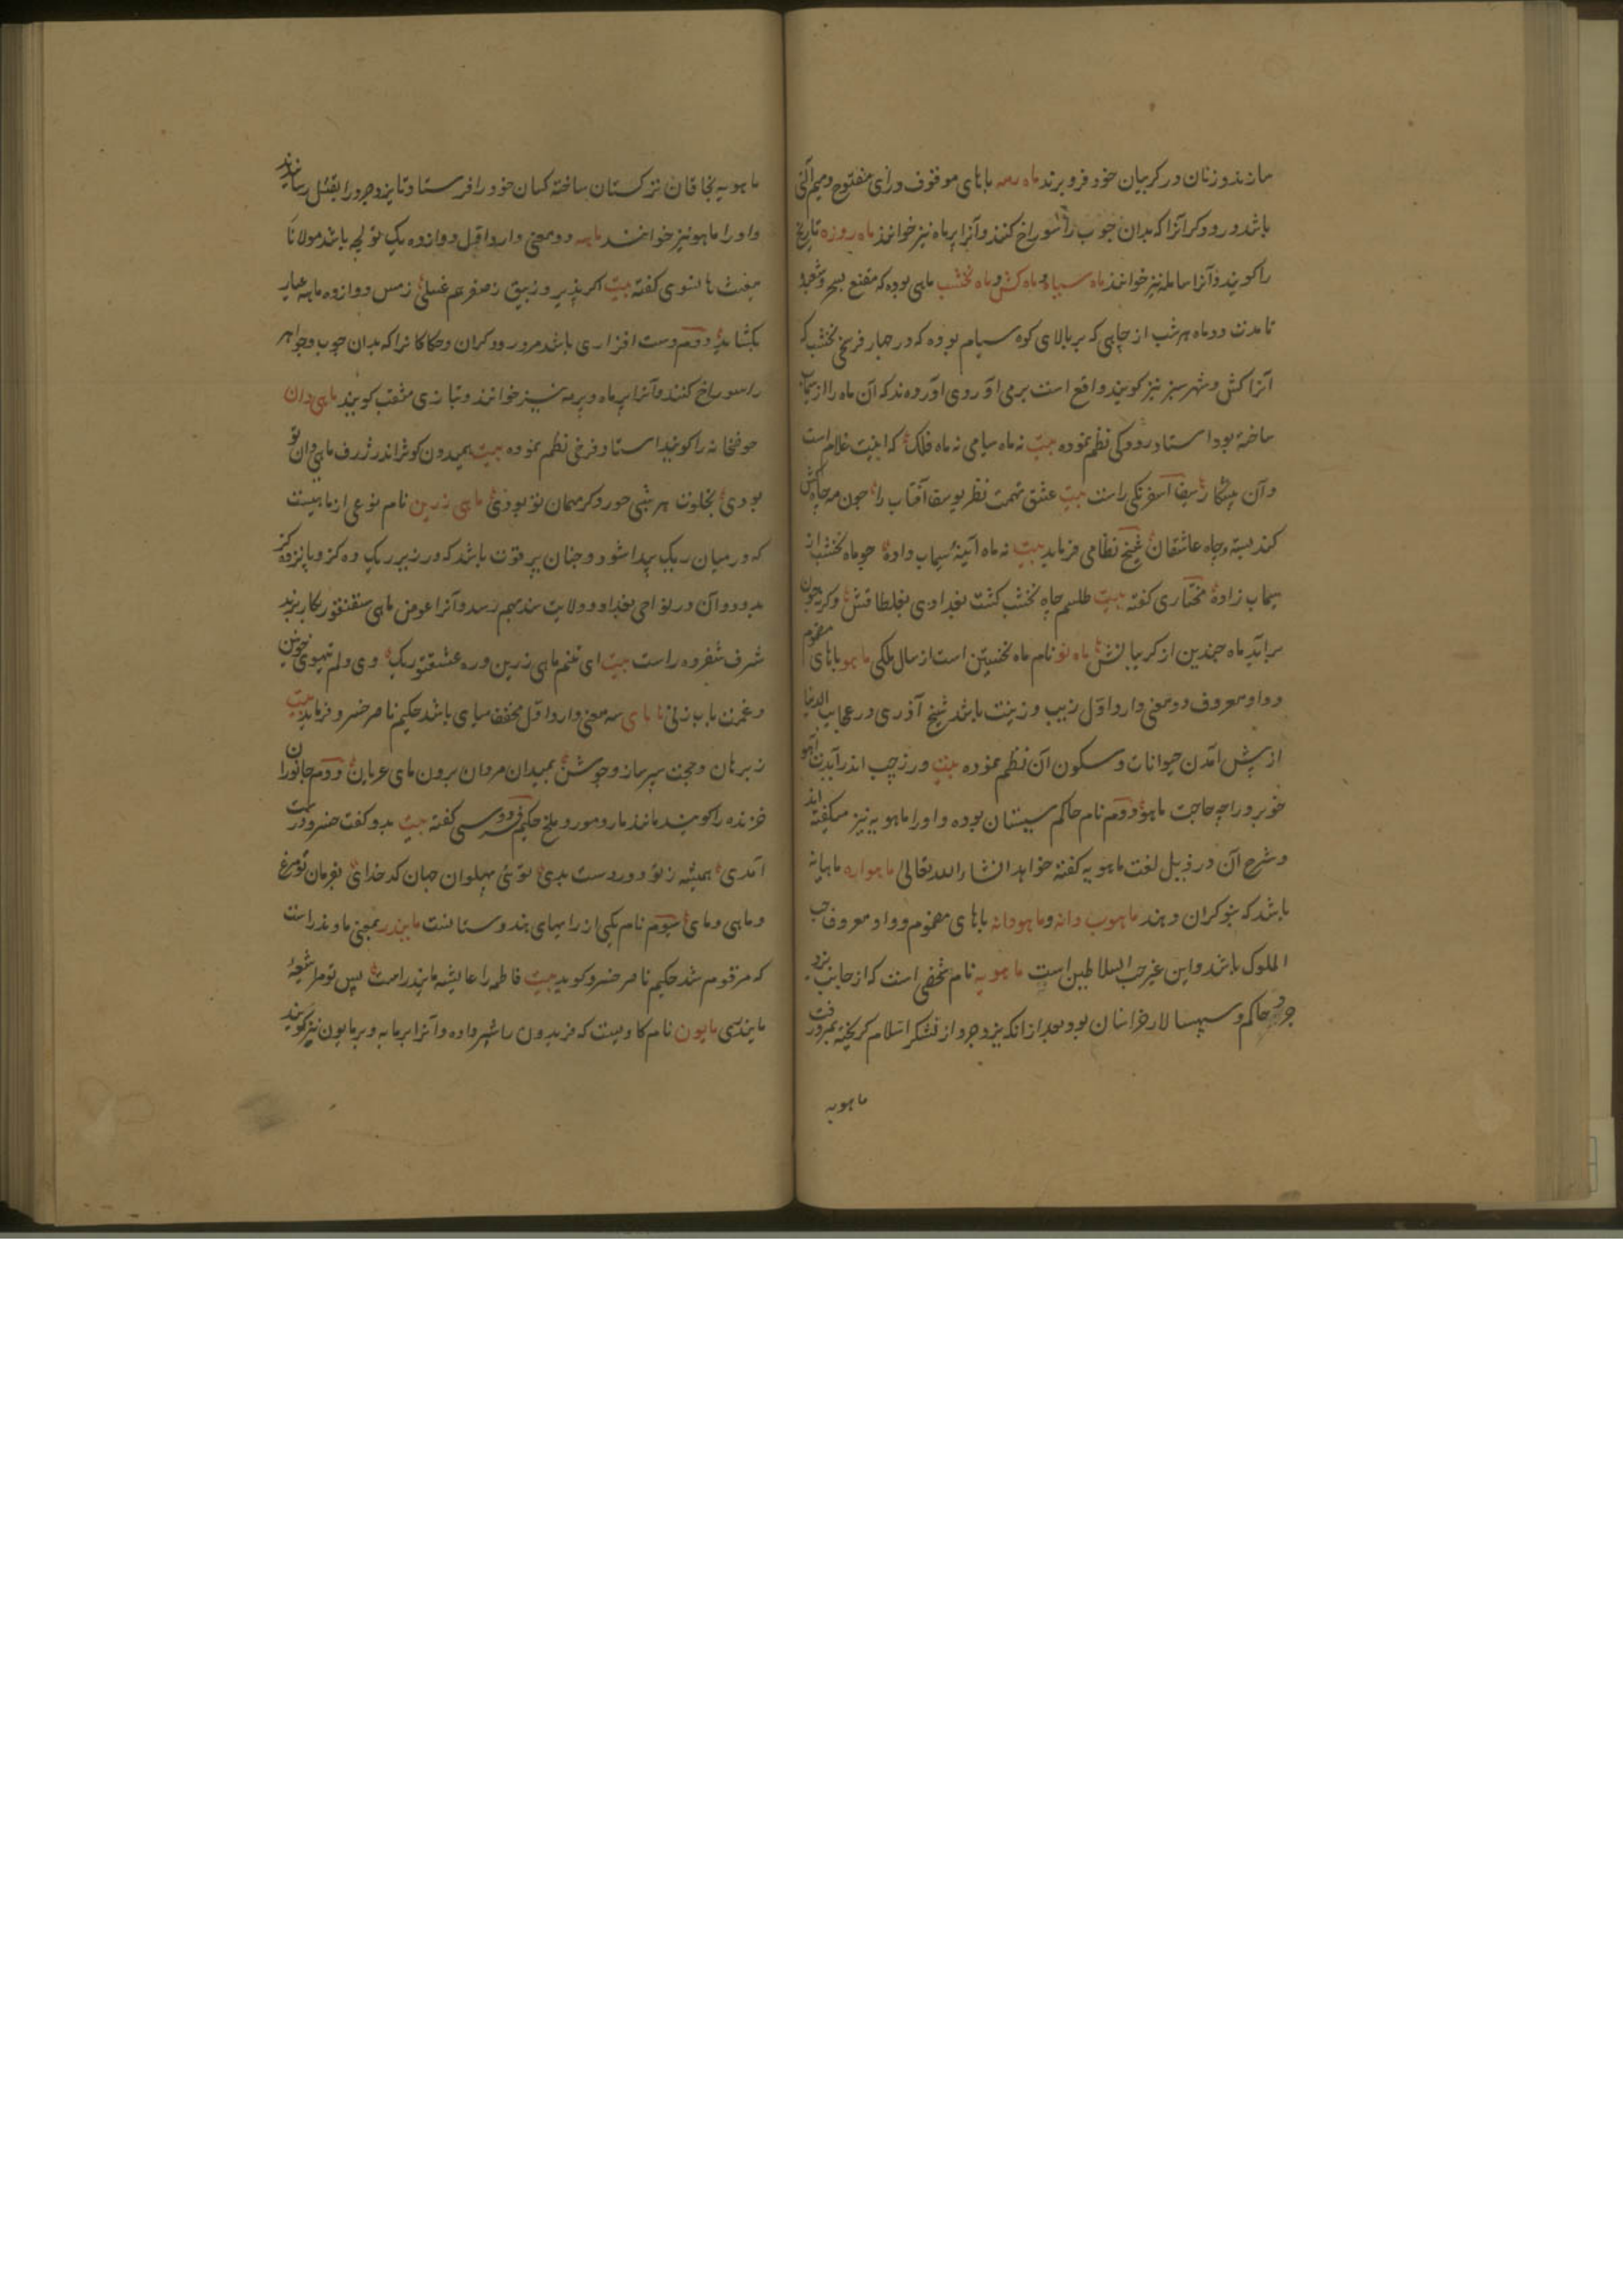 سازند و زنان در کریبان خود فرو برند ماه رمه با های موقوف و رای مفتوح و میم آلتی
باشد درودکر آنرا که بدان چوب را سوراخ کنند و آنرا برماه نیز خوانند ماه روزه تاریخ
را کویند و آنرا سامله نیز خوانند ماه سیام و ماه کش و ماه نخشب ماهی بوده که مقنع بسحر و شعبده
تا مدت دو ماه هر شب از چاهی که بر بالای کوه سیام بوده که در چهار فرسخی نخشب که
آنرا کش و شهر سبز نیز کویند واقع است برمی آورد وی آورده‌ند که آن ماه را از سیماب
ساخته بود استاد رودکی نظم نموده بیت نه ماه سیامی نه ماه فلک که اینت غلام است
و آن پیشکار سیف اسفرنکی راست بیت عشق تهمت نظر یوسف آفتاب را چون مه چاه کش
کند بسته چاه عاشقان شیخ نظامی فرماید بیت نه ماه آینه سیماب داده چو ماه نخشب از
سیماب زاده مختاری کفته بیت طلسم چاه نخشب کشت بغدادی بغلطاقش وکرنه چون
برآید ماه چندین از کریبانش ماه نو نام ماه نخستین است از سال ملکی ماهو با های مضموم
و واو معروف دو معنی دارد اول زیب و زینت باشد شیخ آذری در عجایب الدنیا
از پیش آمدن حیوانات و سکون آن نظم نموده بیت ور ز چپ اندر آیدت آهو
خوبرو را چه حاجت ماهو دوم نام حاکم سیستان بوده و او را ماهویه نیز میکفته اند
و شرح آن در ذیل لغت ماهویه کفته خواهد انشاء الله تعالی ماهواره ماهیانه
باشد که بنوکران دهند ماهوب دانه و ماهودانه با های مضموم و واو معروف حب
الملوک باشد و این غیر حب السلاطین است ماهویه نام شخصی است که از جانب یزد
جرد حاکم و سپهسالار خراسان بود و بعد از آنکه یزدجرد از لشکر اسلام کریخته بمرو رفت
ماهویه
ماهویه بخاقان ترکستان ساخته کسان خود را فرستاد تا یزدجرد را بقتل رسانیدند
و او را ماهو نیز خوانند ماهه دو معنی دارد اول دوازده یک تولچه باشد مولانا
مغیث هانسوی کفته بیت اکر پذیر وزیبق زصفر عم غسلی زمس دوازده ماهه عیار
بکشاید دوم دست افزاری باشد مر درودکران و حکاکانرا که بدان چوب و جواهر
را سوراخ کنند و آنرا برماه و برمه نیز خوانند و بتازی مثقب کویند ماهی دان
حوضخانه را کویند استاد فرخی نظم نموده بیت همیدون کوثر اندر ژرف ماهی دان تو
بودی بخلوت هر شبی حور دکر مهمان تو بودی ماهی زرین نام نوعی از ماهیست
که در میان ریک پیدا شود و چنان پر قوت باشد که در زیر ریک ده کز و پانزده کز
بدود و آن در نواحی بغداد و ولایت سند بهم رسد و آنرا عوض ماهی سقنقور بکار برند
شرف شفروه راست بیت ای تنم ماهی زرین در ره عشقت ریک وی دلم تیهوی خونین
و غمت بابزنی مای سه معنی دارد اول مخفف میای باشد حکیم ناصر خسرو فرماید بیت
ز برهان و حجت سپر ساز و جوشن بمیدان مردان برون مای عریان دوم جانوران
خزنده را کویند مانند مار و مور و ملخ حکیم فردوسی کفته بیت بدو کفت خسرو درست
آمدی همیشه ز تو دور دست بدی توئی پهلوان جهان کدخدای بفرمان تو مرغ
و ماهی و مای سیوم نام یکی از رایهای هندوستانست مایندر بمعنی مادندر است
که مرقوم شد حکیم ناصر خسرو کوید بیت فاطمه را عایشه مایندر است پس تو مرا شیعهٔ
مایندری مایون نام کاویست که فریدون را شیر داده و آنرا برمایه و برمایون نیز کویند